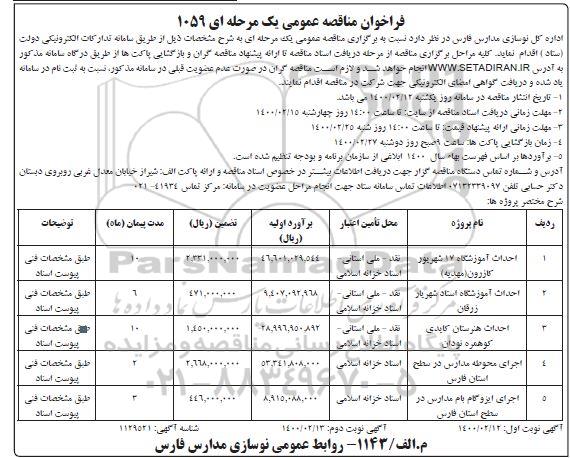 فراخوان مناقصه عمومی یک مرحله ای ۱۰۵۹
اداره کل نوسازی مدارس فارس در نظر دارد نسبت به برگزاری مناقصه عمومی یک مرحله ای به شرح مشخصات ذیل از طریق سامانه تدارکات الکترونیکی دولت
(ستاد) اقدام نماید. کلیه مراحل برگزاری مناقصه از مرحله دریافت اسناد مناقصه تا ارائه پیشنهاد مناقصه گران و بازگشایی پاکت ها از طریق درگاه سامانه مذکور
به آدرس WWW.SETADIRAN.IR انجام خواهد شد و لازم است مناقصه گران در صورت عدم عضویت قبلی در سامانه مذکور، نسبت به ثبت نام در سامانه
یاد شده و دریافت گواهی امضای الکترونیکی جهت شرکت در مناقصه اقدام نمایند.
۱- تاریخ انتشار مناقصه در سامانه روز یکشنبه ۱۴۰۰/۰۲/۱۲ می باشد.
۲- مهلت زمانی دریافت اسناد مناقصه از سایت: تا ساعت ۱۴:۰۰ روز چهارشنبه ۱۴۰۰/۰۲/۱۵
۳- مهلت زمانی ارائه پیشنهاد قیمت: تا ساعت ۱۴:۰۰ روز شنبه ۱۴۰۰/۰۲/۲۵
۴- زمان بازگشایی پاکت ها: ساعت ۹صبح روز دوشنبه ۱۴۰۰/۰۲/۲۷
۵- برآوردها بر اساس فهرست بهاء سال ۱۴۰۰ ابلاغی از سازمان برنامه و بودجه تنظیم شده است.
آدرس و شماره تماس دستگاه مناقصه گزار جهت دریافت اطلاعات بیشتر در خصوص اسناد مناقصه و ارائه پاکت الف: شیراز خیابان معدل غربی روبروی دبستان
دکتر حسابی تلفن ۰۷۱۳۲۳۳۹۰۹۷ اطلاعات تماس سامانه ستاد جهت انجام مراحل عضویت در سامانه: مرکز تماس ۴۱۹۳۴-۰۲۱
شرح مختصر پروژه ها:
ردیف نام پروژه محل تأمین اعتبار برآورد اولیه (ریال) تضمین (ریال) مدت پیمان (ماه) توضیحات
۱ احداث آموزشگاه ۱۷ شهریور کازرون(مهدیه) نقد - ملی استانی- اسناد خزانه اسلامی ۴۶,۶۰۱,۰۲۹,۵۴۴ ۲,۳۳۱,۰۰۰,۰۰۰ ۱۰ طبق مشخصات فنی پیوست اسناد
۲ احداث آموزشگاه استاد شهریار زرقان نقد - ملی استانی- اسناد خزانه اسلامی ۹,۴۰۷,۰۹۲,۹۶۸ ۴۷۱,۰۰۰,۰۰۰ ۶ طبق مشخصات فنی پیوست اسناد
۳ احداث هنرستان کایدی کوهمره نودان نقد - ملی استانی- اسناد خزانه اسلامی ۲۸,۹۹۶,۹۵۰,۸۹۲ ۱,۴۵۰,۰۰۰,۰۰۰ ۱۰ طبق مشخصات فنی پیوست اسناد
۴ اجرای محوطه مدارس در سطح استان فارس اسناد خزانه اسلامی ۵۳,۳۴۱,۸۰۸,۰۰۰ ۲,۶۶۸,۰۰۰,۰۰۰ ۲ طبق مشخصات فنی پیوست اسناد
۵ اجرای ایزوگام بام مدارس در سطح استان فارس اسناد خزانه اسلامی ۸,۹۱۵,۰۸۸,۰۰۰ ۴۴۶,۰۰۰,۰۰۰ ۳ طبق مشخصات فنی پیوست اسناد
آگهی نوبت اول: ۱۴۰۰/۰۲/۱۲ آگهی نوبت دوم: ۱۴۰۰/۰۲/۱۳ شناسه آگهی: ۱۱۲۹۵۲۱
م.الف/۱۱۴۳- روابط عمومی نوسازی مدارس فارس
ParsNamadData
پایگاه اطلاع رسانی مناقصه و مزایده
۰۲۱-۸۸۳۴۹۶۷۰-۵